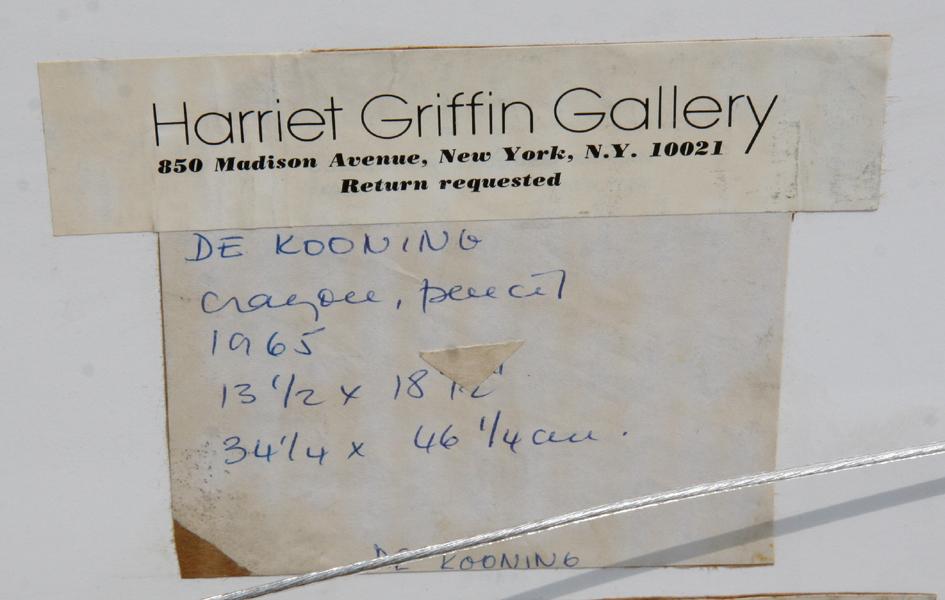 Harriet Griffin Gallery
850 Madison Avenue, New York, N.Y. 10021
Return requested
DE KOONING
crayon, pencil
1965
13 1/2 x 18
34 1/4 x 46 1/4 cm.
DE KOONING